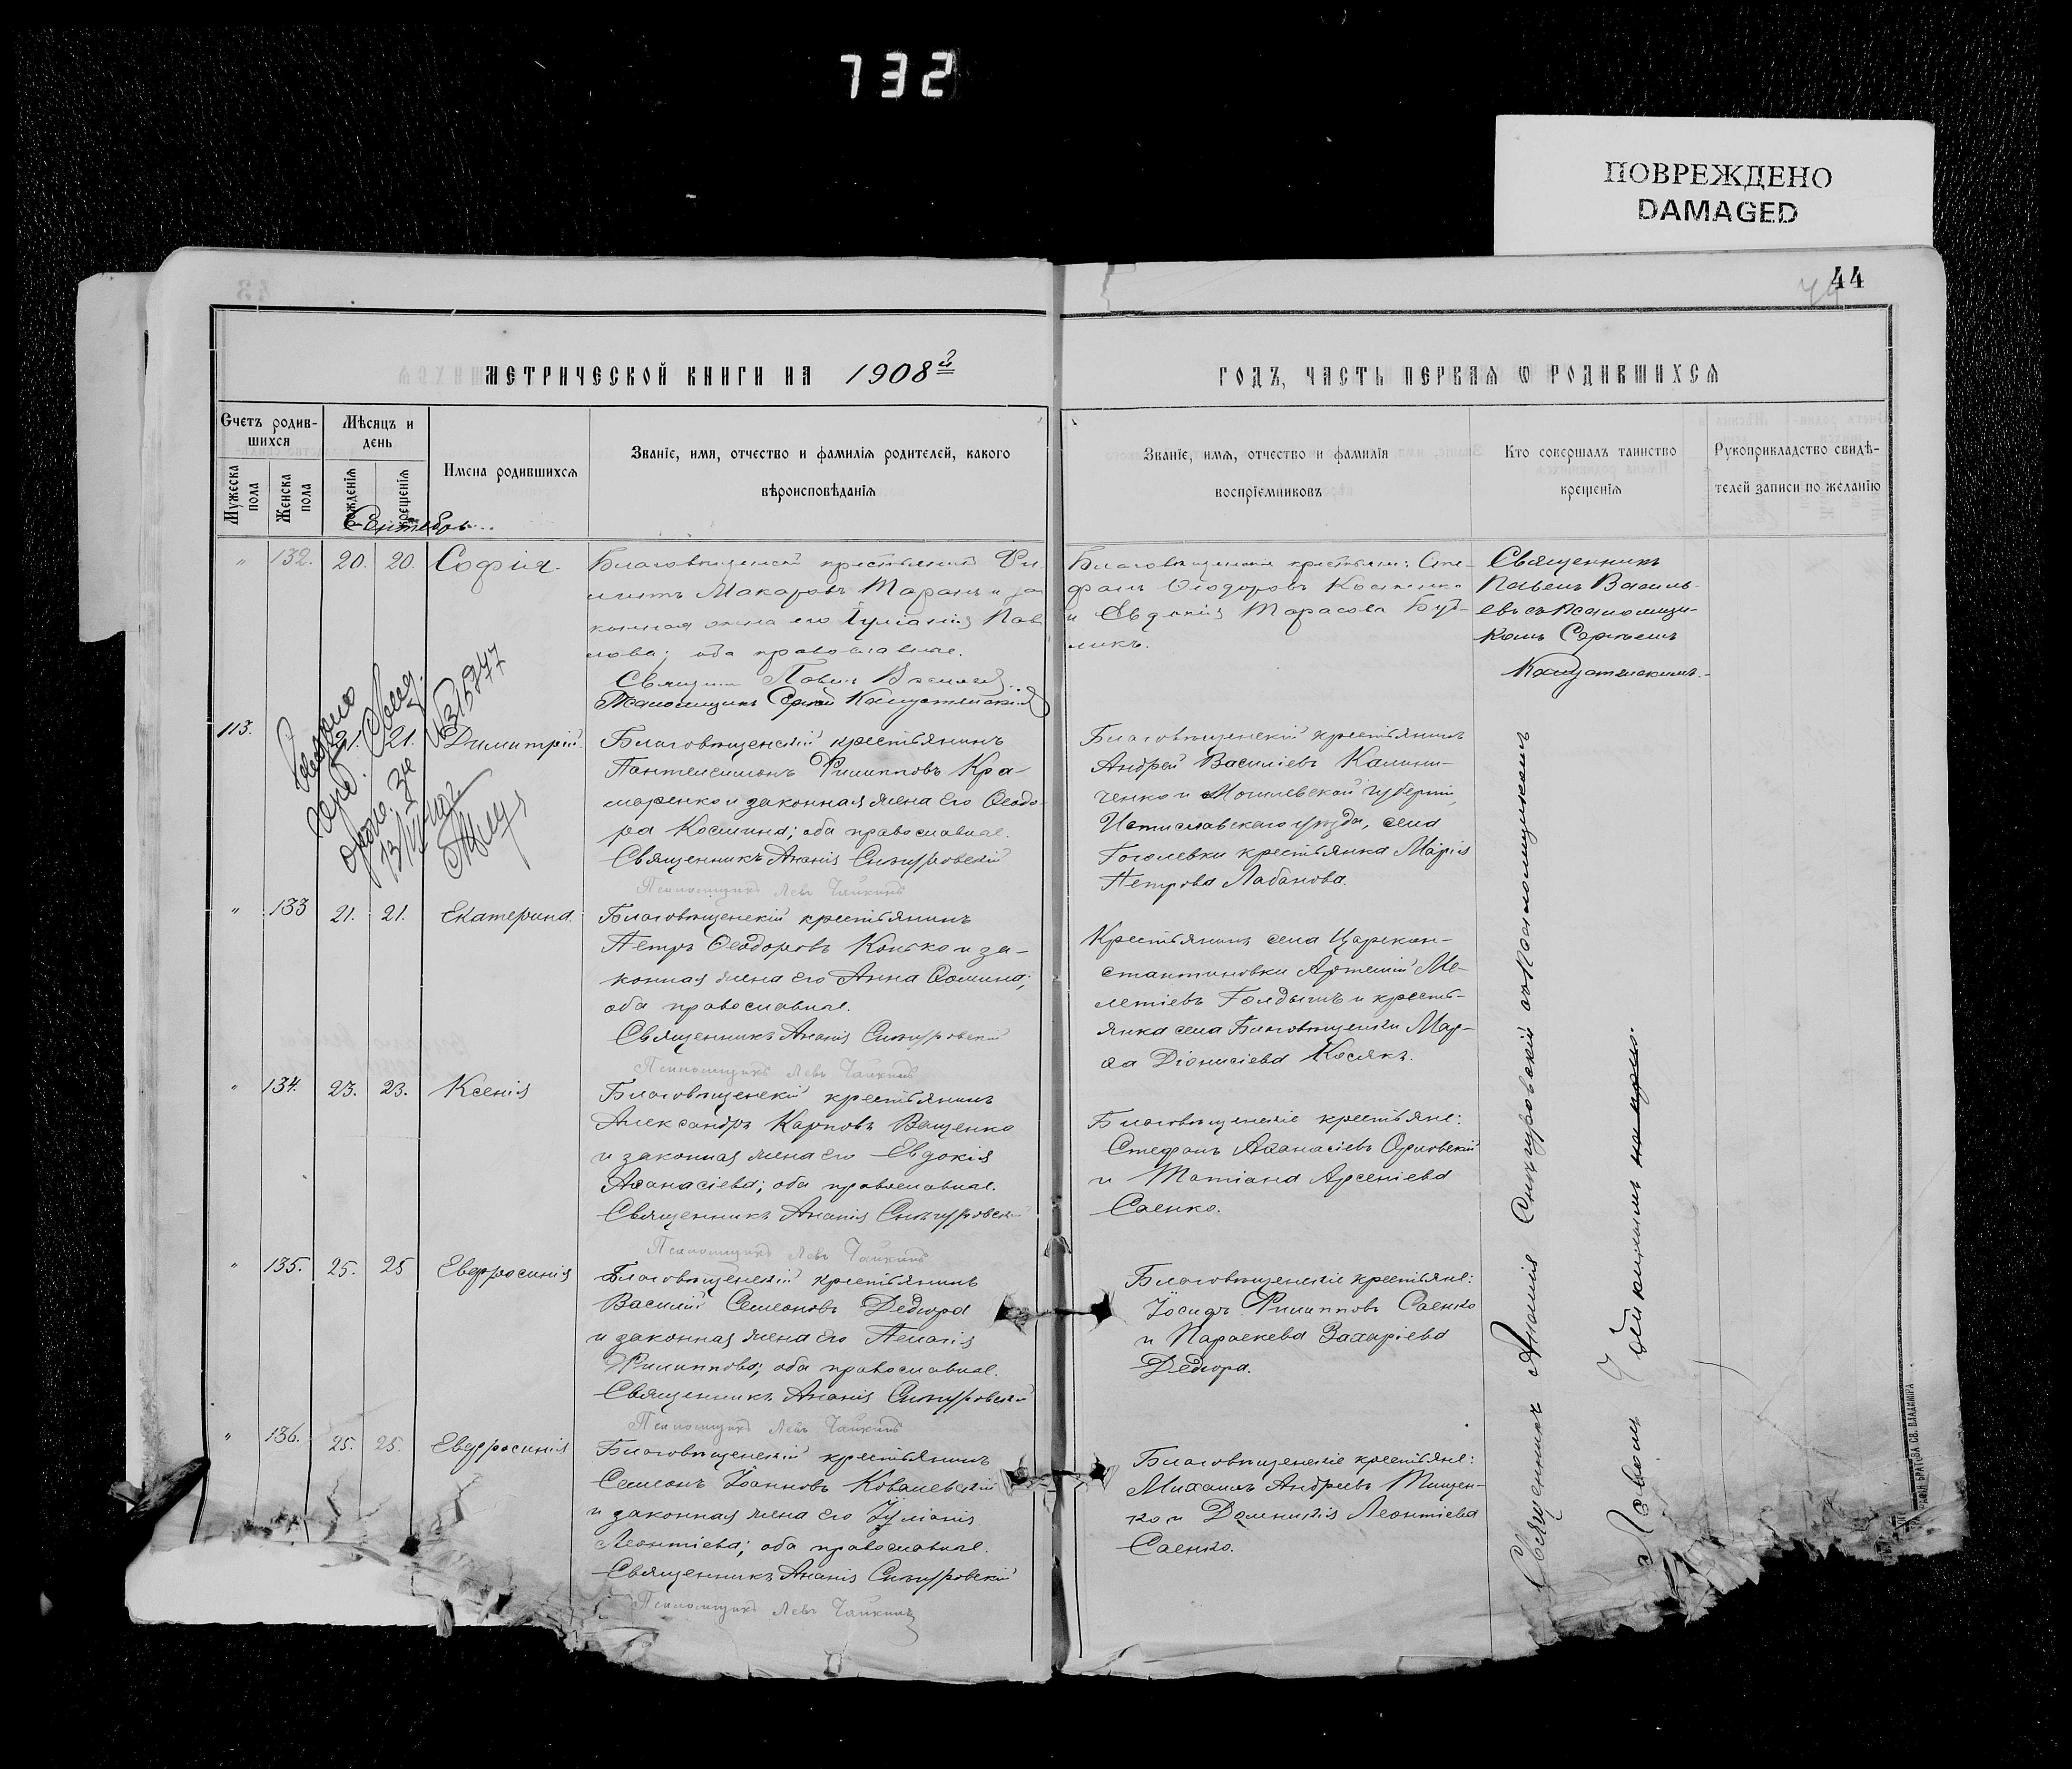 732
ПОВРЕЖДЕНО
DAMAGED
44
МЕТРИЧЕСКОЙ КНИГИ НА 1908й
ГОДЪ, ЧАСТЬ ПЕРВАЯ Ѡ РОДИВШИХСЯ
Счетъ родив-
шихся
Мужеска
пола
Женска
пола
Мѣсяцъ и
день
рожденія
крещенія
Имена родившихся
Званіе, имя, отчество и фамилія родителей, какого
вѣроисповѣданія
Званіе, имя, отчество и фамилія
воспріемниковъ
Кто совершалъ таинство
крещенія
Рукоприкладство свидѣ-
телей записи по желанію
Сентябрь
„ 132. 20. 20. Софія.
Благовѣщенскій крестьянинъ Фи-
липпъ Макаровъ Таранъ и за
конная жена его Іуліанія Пав
лова; оба православные.
Священ Павелъ Васильев
Псаломщикъ Сергій Капустянскій
Благовѣщенскіе крестьяне: Сте-
фанъ Ѳеодоровъ Костенко
и Евдокія Тарасова Буд-
никъ.
Священникъ
Павелъ Василь-
евъ съ псаломщи-
комъ Сергіемъ
Капустянскимъ.
113. 21. 21. Димитрій.
Благовѣщенскій крестьянинъ
Пантелеимонъ Филипповъ Кра-
маренко и законная жена его Ѳеодо-
ра Космина; оба православные.
Священникъ Ананія Снѣгуровскій
Псаломщикъ Левъ Чайкинъ
Благовѣщенскій крестьянинъ
Андрей Василіевъ Калини-
ченко и Могилевской губерніи,
Мстиславскаго уѣзда, села
Гоголевки крестьянка Марія
Петрова Лабанова.
„ 133 21. 21. Екатерина.
Благовѣщенскій крестьянинъ
Петръ Ѳеодоровъ Конько и за-
конная жена его Анна Ѳомина;
оба православные.
Священникъ Ананія Снѣгуровскій
Псаломщикъ Левъ Чайкинъ
Крестьянинъ села Царекон-
стантиновки Артемій Ме-
летіевъ Голдышъ и кресть-
янка села Благовѣщенки Мар-
ѳа Діонисіева Косякъ.
„ 134. 23. 23. Ксенія
Благовѣщенскій крестьянинъ
Александръ Карповъ Ващенко
и законная жена его Евдокія
Аѳанасіева; оба православные.
Священникъ Ананія Снѣгуровскій
Псаломщикъ Левъ Чайкинъ
Благовѣщенскіе крестьяне:
Стефанъ Аѳанасіевъ Орловскій
и Татіана Арсеніева
Саенко.
„ 135. 25. 25 Евфросинія
Благовѣщенскій крестьянинъ
Василій Семеоновъ Дедюра
и законная жена его Пелагія
Филиппова; оба православные.
Священникъ Ананія Снѣгуровскій
Псаломщикъ Левъ Чайкинъ
Благовѣщенскіе крестьяне:
Іосифъ Филипповъ Саенко
и Параскева Захаріева
Дедюра.
„ 136. 25. 25. Евфросинія
Благовѣщенскій крестьянинъ
Семеонъ Іоанновъ Ковалевскій
и законная жена его Іуліанія
Леонтіева; оба православные.
Священникъ Ананія Снѣгуровскій
Псаломщикъ Левъ Чайкинъ
Благовѣщенскіе крестьяне:
Михаилъ Андреевъ Тищен-
ко и Домникія Леонтіева
Саенко.
Священникъ Ананія Снѣгуровскій съ псаломщикомъ
Львомъ Чайкинымъ
БРАТСТВА СВ. ВЛАДИМІРА